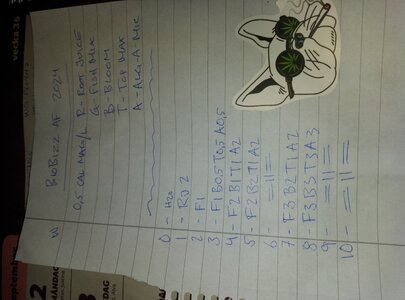 W BIOBIZZ AF 2024
0,5 CAL MAG/L R-ROOT JUICE
G-FISH MIX
B-BLOOM
T-TOP MAX
A-ALG-A-MIC
0 - H2O
1 - RJ 2
2 - F1
3 - F1 B0,5 T0,5 A0,5
4 - F2 B1 T1 A2
5 - F2 B2 T1 A2
6 - = 11 =
7 - F3 B2 T1 A2
8 - F3 B3 T3 A3
9 - = 11 =
10 - = 11 =
vecka 36
septembe
MÅNDAG
2
DAG
3